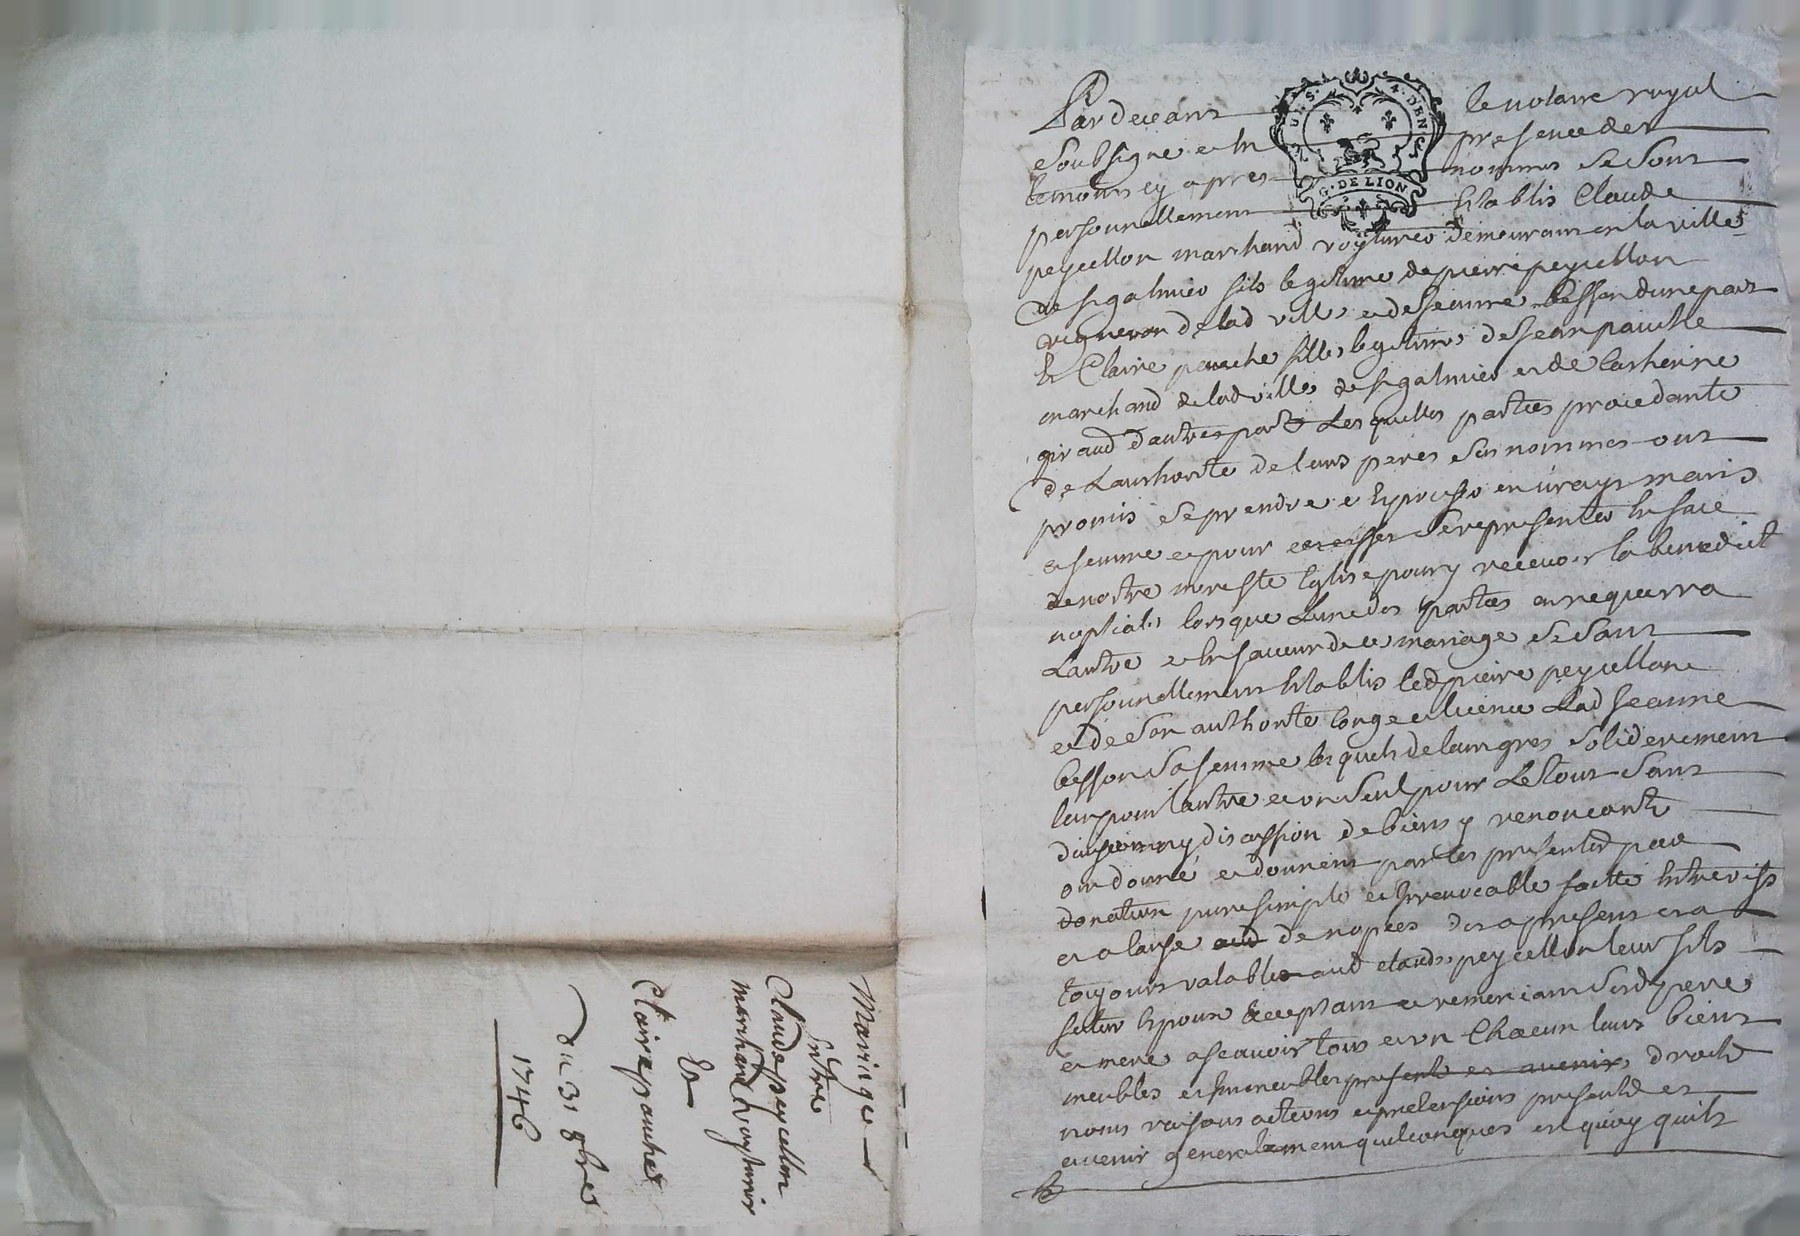 Mariage
Entre
Claude peycellon
marchand voyturier
Et
Claire pauche
Du 31 8bre
1746
U. S. 4. DEN
G. DE LION
Pardevant le notaire royal
Soubsigne et En presence des
temoins cy apres nommes se sont
personnellement Etablis Claude
peycellon marchand voyturier demeurant en la ville
de st galmier fils legitime de pierre peycellon
vigneron de lad ville et de Jeanne besson dune part
Et Claire pauche fille legitime de Jean pauche
marchand de lad ville de st galmier et de Catherine
giraud dautre part Lesquelles parties procedante
de Lauthorite de leurs peres Sus nommes ont
promis se prendre et Epouser en vrays maris
et femme et pour ce se representer En face
de nostre mere ste Eglise pour y recevoir la benedict
nuptiale lorsque Lune des parties en requerra
Lautre et En faveur de ce mariage se sont
personnellement Etablis led pierre peycellon
et de Son authorite conge et licence Lad Jeanne
besson Sa femme lesquels de leur gres Soliderement
lun pour lautre et un Seul pour Le tout Sans
division ny discussion de biens y renoncants
ont donné et donnent par les presentes par
donation pure simple et Irrevocable faitte Entre vifs
et a cause de nopces des a present et a
toujours valable aud claude peycellon leur fils
futur Epoux acceptant et remerciant Sesd pere
et mere a scavoir tous et un Chacun leurs biens
meubles et Immeubles present et avenir, droits
noms raisons actions et pretensions presents et
avenir generalement quelconques en quoy quils